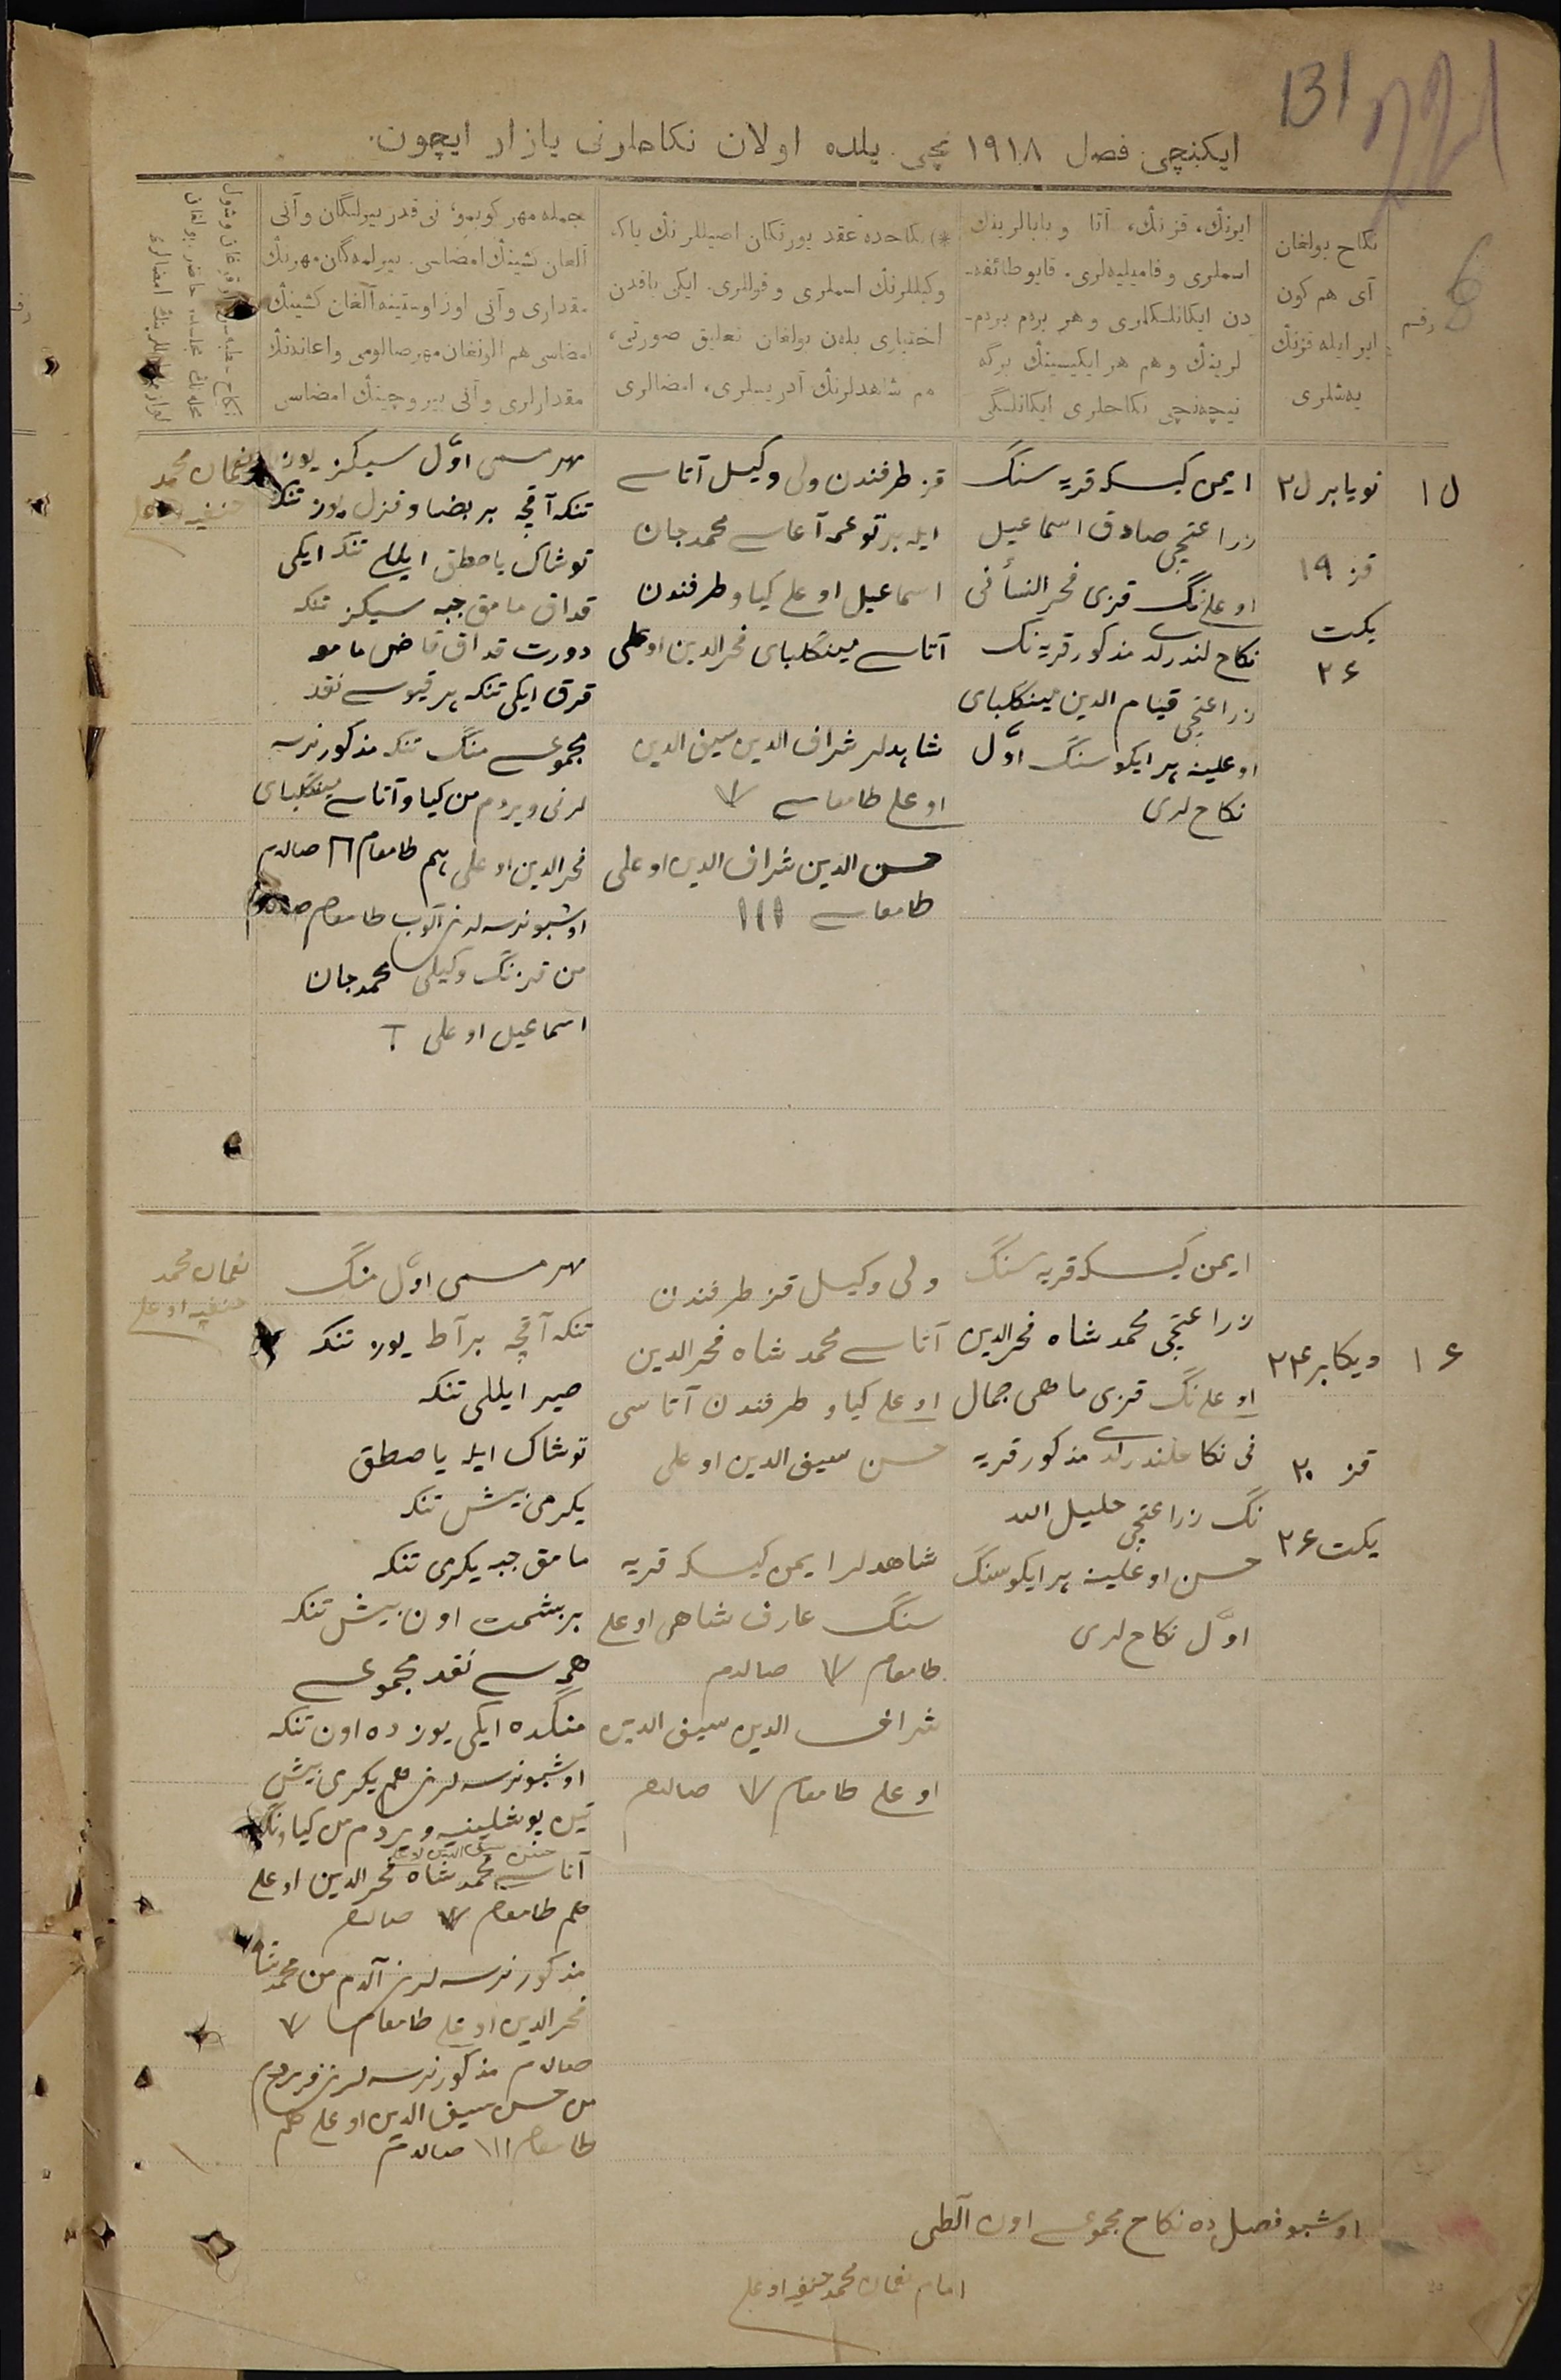 131
221
6
ایکنچی فصل ١٩١٨ نچی یلده اولان نکاحلرنی یازار ایچون
رقم
نکاح بولغان
آی هم کون
ایر ایله قزنڭ
یه‌شلری
ایرنڭ، قزنڭ، آتا و بابالرینڭ
اسملری و فامیلیه‌لری. قایو طائفه-
دن ایکانلکلری و هر بردم بردم-
لرینڭ و هم هر ایکیسینڭ برگه
نیچه‌نچی نکاحلری ایکانلیگی
*) نکاحده عقد یورتکان اصیللرنڭ یاکه
وکیللرنڭ اسملری و قوللری. ایکی یاقدن
اختیاری بله‌ن بولغان تعلیق صورتی،
هم شاهدلرنڭ آدریسلری، امضالری
جمله مهر کوبمو، نی قدر بیرلگان و آنی
آلغان کشینڭ امضاسی. بیرلمه‌گان مهرنڭ
مقداری و آنی اوز اوستینه آلغان کشینڭ
امضاسی هم آلونغان مهر صالومی و اعانه‌نڭ
مقدارلری و آنی بیروچینڭ امضاسی
١٥
نویابر ٢٥
قز ١٩
یکت
٢۶
ایمن کیسکه قریه سنگ
زراعتچی صادق اسماعیل
اوعلینگ قزی فخر النسأ نی
نکاح لندرلدے مذکور قریه نگ
زراعتچی قیام الدین مینگلبای
اوعلینه هر ایکوسنگ اوّل
نکاح لری
قز طرفندن ولی وکیل آتاسے
ایله بر توعمه آعاسے محمدجان
اسماعیل اوعلے کیاو طرفندن
آتاسے مینگلبای فخر الدین اوعلی
شاهدلر شراف الدین سیف الدین
اوعلے طامعاسے
حسن الدین شراف الدین اوعلی
طامعاسے ۱۱۱
مهر مسمی اوّل سیکز یوز
تنکه آقچه بر بضاو قزل یوز تنکه
توشاک یاصطق ایللے تنکه ایکی
قداق مامق جبه سیکز تنکه
دورت قداق قاض مامو
قرق ایکی تنکه هر قیوسے نقد
مجموعے منگ تنکه مذکور نرسه
لرنی ویردم من کیاو آتاسے مینگلبای
فخر الدین اوعلی هم طامعام صالدم
اوشبو نرسه لرنی آلوب طامعام صالدم
من قزنگ وکیلی محمدجان
اسماعیل اوعلی T
نعمان محمد
حنفیه اوعلے
١۶
دیکابر ٢٤
قز ٢٠
یکت ٢۶
ایمن کیسکه قریه سنگ
زراعتچی محمد شاه فخر الدین
اوعلے نگ قزی ماهی جمال
نی نکاحلندرلدے مذکور قریه
نگ زراعتچی خلیل الله
حسن اوعلینه هر ایکوسنگ
اوّل نکاح لری
ولی وکیل قز طرفندن
آتاسے محمد شاه فخر الدین
اوعلے کیاو طرفندن آتاسی
حسن سیف الدین اوعلی
شاهدلر ایمن کیسکه قریه
سنگ عارف شاهی اوعلے
طامعام صالدم
شراف الدین سیف الدین
اوعلے طامعام صالدم
مهر مسمی اوّل منگ
تنکه آقچه بر آط یوز تنکه
صیر ایللی تنکه
توشاک ایله یاصطق
یکرمی بیش تنکه
مامق جبه یکرمی تنکه
بر بشمت اون بیش تنکه
همه سے نقد مجموعے
منگده ایکی یوز ده اون تنکه
اوشبو نرسه لرنی هم یکرمی بیش
تین بوشلینه ویردم من کیاو نگ
حسن سیف الدین اوعلے
آتاسے محمد شاه فخر الدین اوعلے
هم طامعام صالدم
مذکور نرسه لرنی آلدم من محمد شاه
فخر الدین اوعلے طامعام
صالدم مذکور نرسه لرنی ویردم
من حسن سیف الدین اوعلے هم
طامعام ۱۱۱ صالدم
نعمان محمد
حنفیه اوعلے
اوشبو فصل ده نکاح مجموعے اون آلطی
امام نعمان محمد حنفیه اوعلے